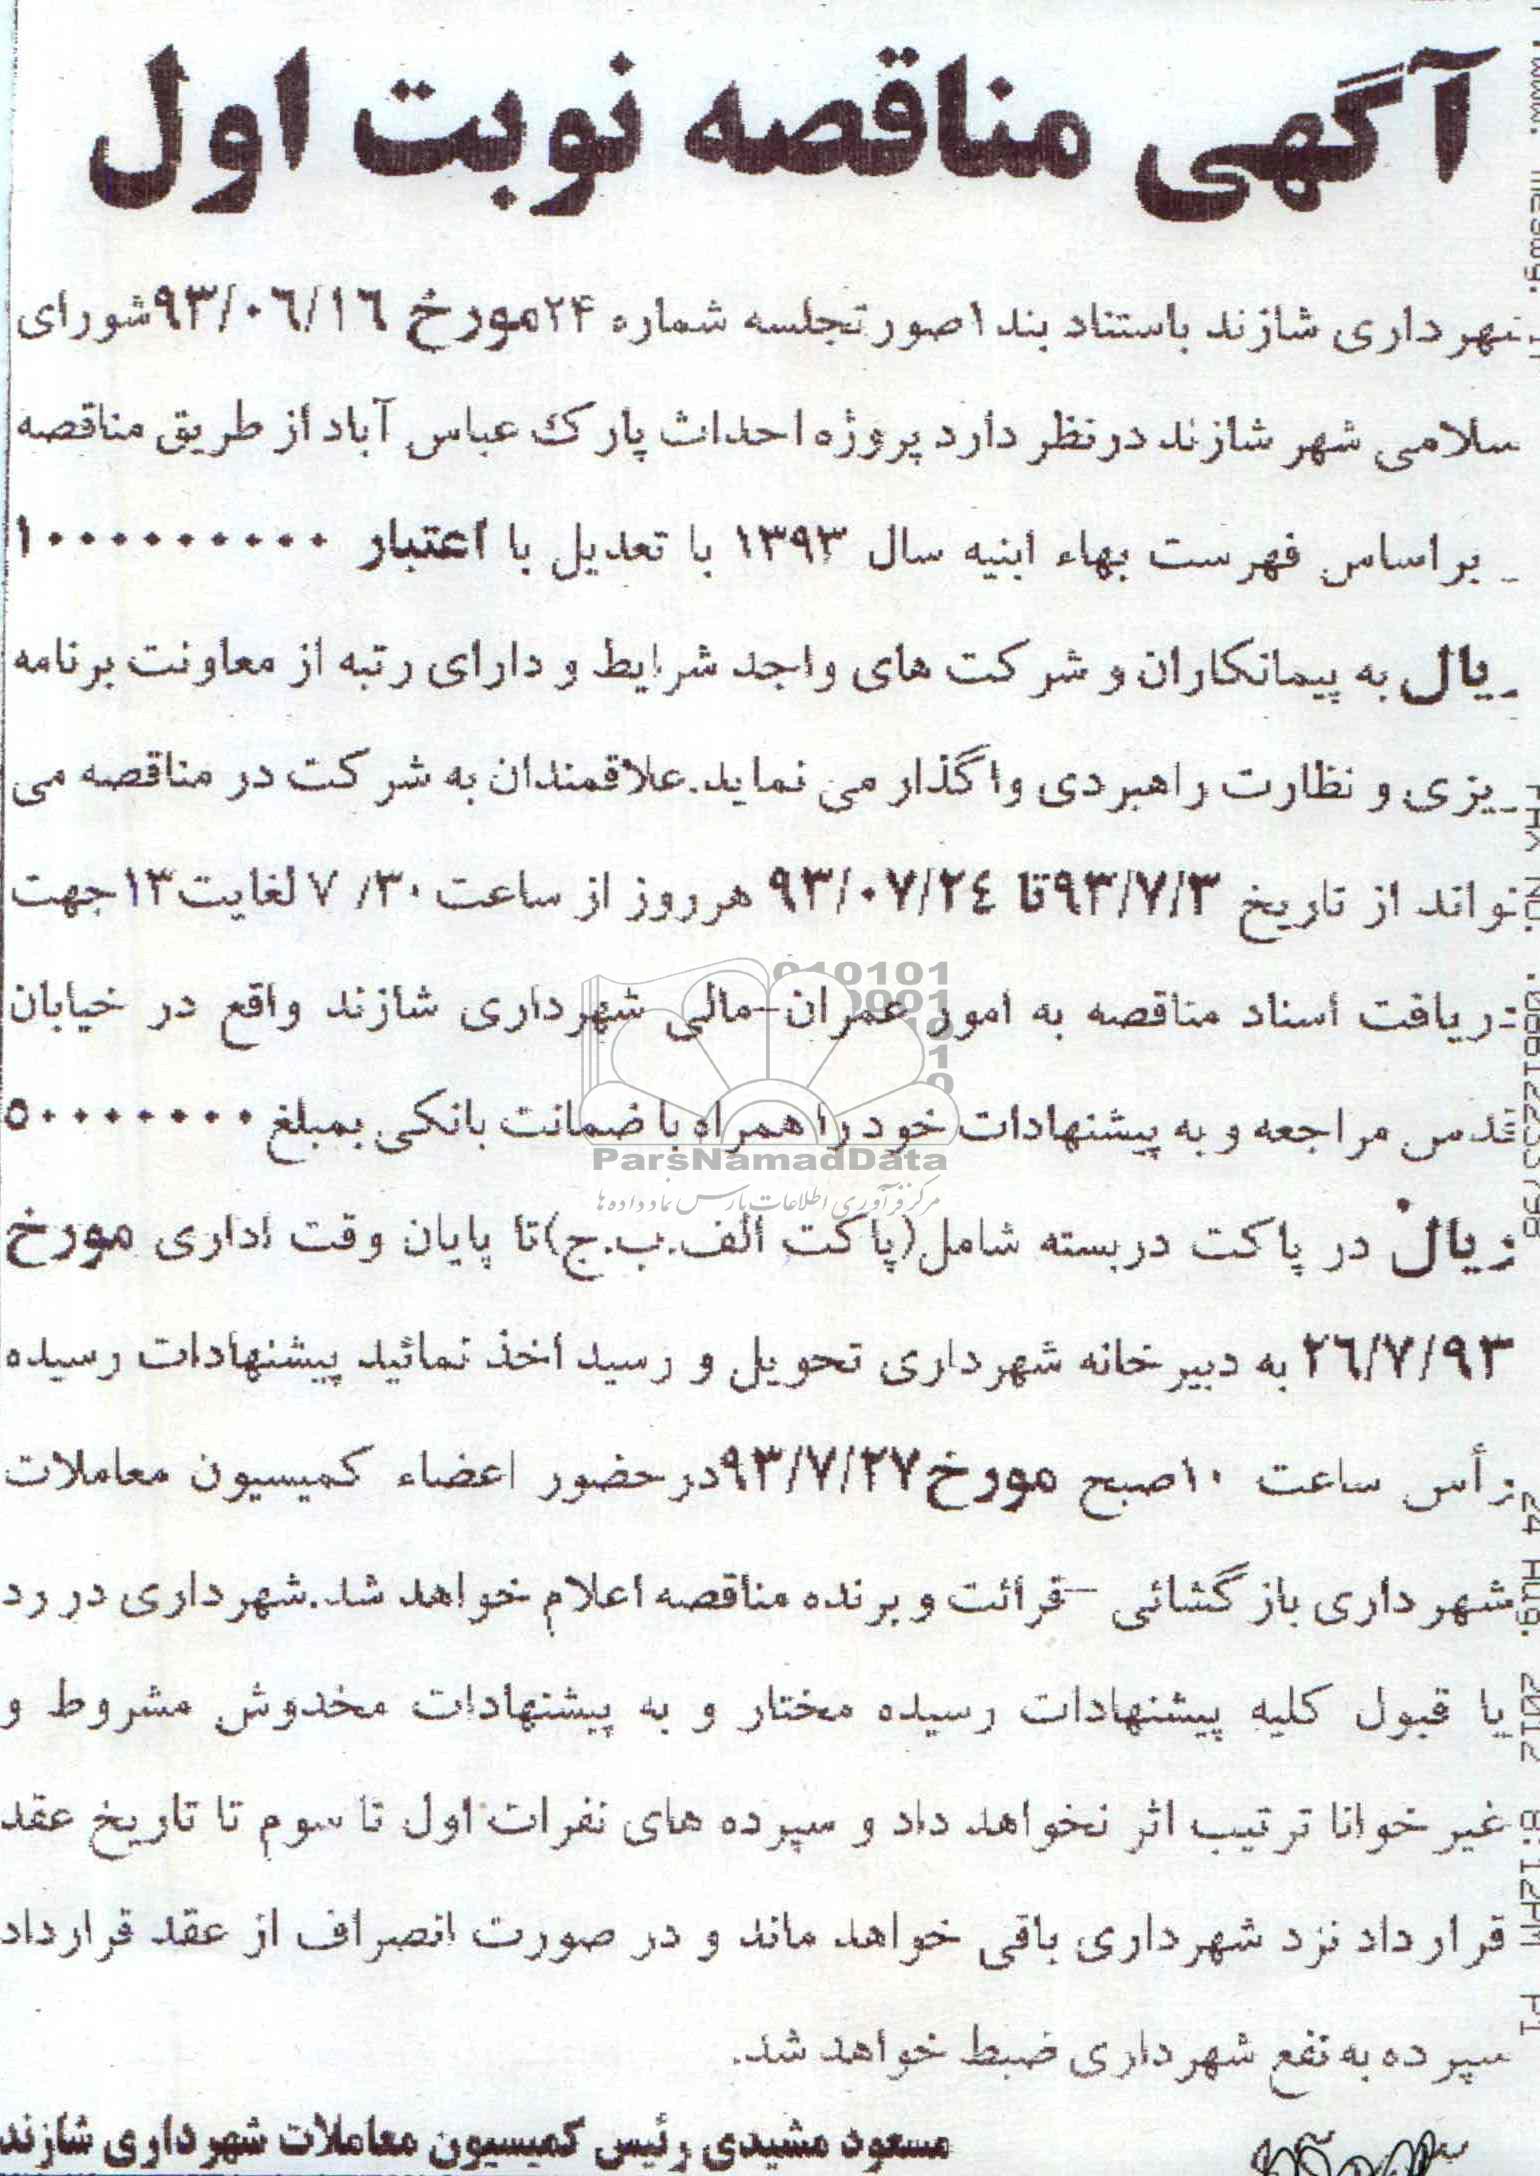 آگهی مناقصه نوبت اول
شهرداری شازند باستناد بند ۱صورتجلسه شماره ۲۴مورخ ۹۳/۰۶/۱۶شورای
سلامی شهر شازند درنظر دارد پروژه احداث پارک عباس آباد از طریق مناقصه
براساس فهرست بهاء ابنیه سال ۱۳۹۳ با تعدیل با اعتبار ۱۰۰۰۰۰۰۰۰۰۰
ریال به پیمانکاران و شرکت های واجد شرایط و دارای رتبه از معاونت برنامه
ریزی و نظارت راهبردی واگذار می نماید.علاقمندان به شرکت در مناقصه می
تواند از تاریخ ۹۳/۷/۳تا ۹۳/۰۷/۲۴ هرروز از ساعت ۷/۳۰ لغایت۱۳جهت
دریافت اسناد مناقصه به امور عمران-مالی شهرداری شازند واقع در خیابان
قدس مراجعه و به پیشنهادات خود را همراه با ضمانت بانکی بمبلغ ۵۰۰۰۰۰۰۰۰
ریال در پاکت دربسته شامل(پاکت الف.ب.ج)تا پایان وقت اداری مورخ
۲۶/۷/۹۳ به دبیرخانه شهرداری تحویل و رسید اخذ نمائید پیشنهادات رسیده
رأس ساعت ۱۰صبح مورخ۹۳/۷/۲۷درحضور اعضاء کمیسیون معاملات
شهرداری بازگشائی –قرائت و برنده مناقصه اعلام خواهد شد.شهرداری در رد
یا قبول کلیه پیشنهادات رسیده مختار و به پیشنهادات مخدوش مشروط و
غیرخوانا ترتیب اثر نخواهد داد و سپرده های نفرات اول تا سوم تا تاریخ عقد
قرارداد نزد شهرداری باقی خواهد ماند و در صورت انصراف از عقد قرارداد
سپرده به نفع شهرداری ضبط خواهد شد.
مسعود مشیدی رئیس کمیسیون معاملات شهرداری شازند
010101
ParsNamadData
مرکز فرآوری اطلاعات پارس نماد داده ها
24 Aug. 2012 8:12PM P1